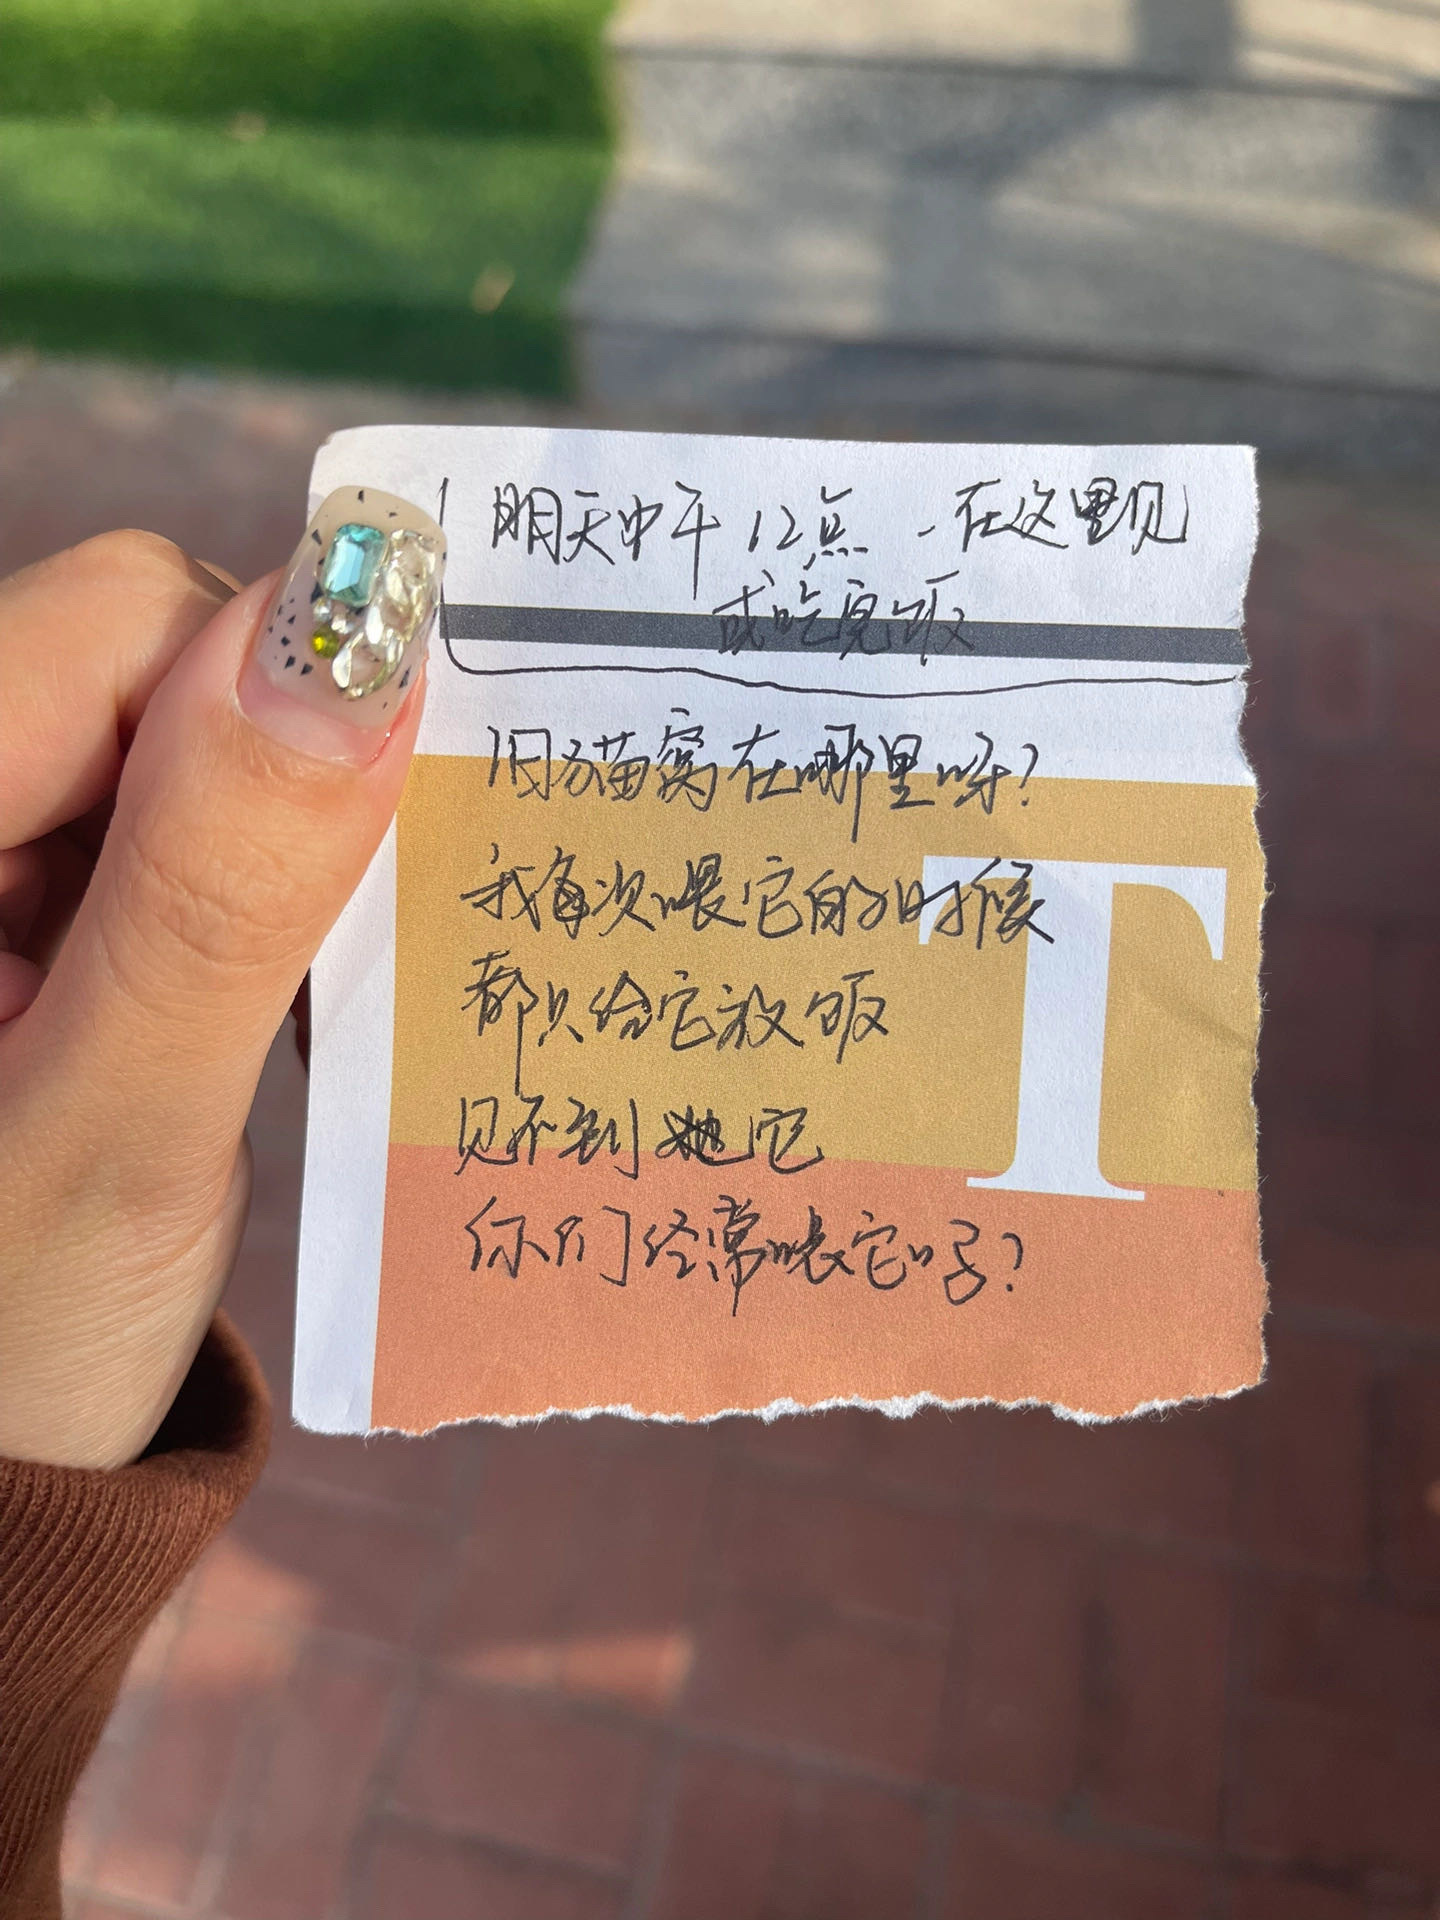 明天中午12点、在这里见
或吃完饭
旧猫窝在哪里呀?
我每次喂它的时候
都只给它放饭
见不到她它
你们经常喂它吗?
T